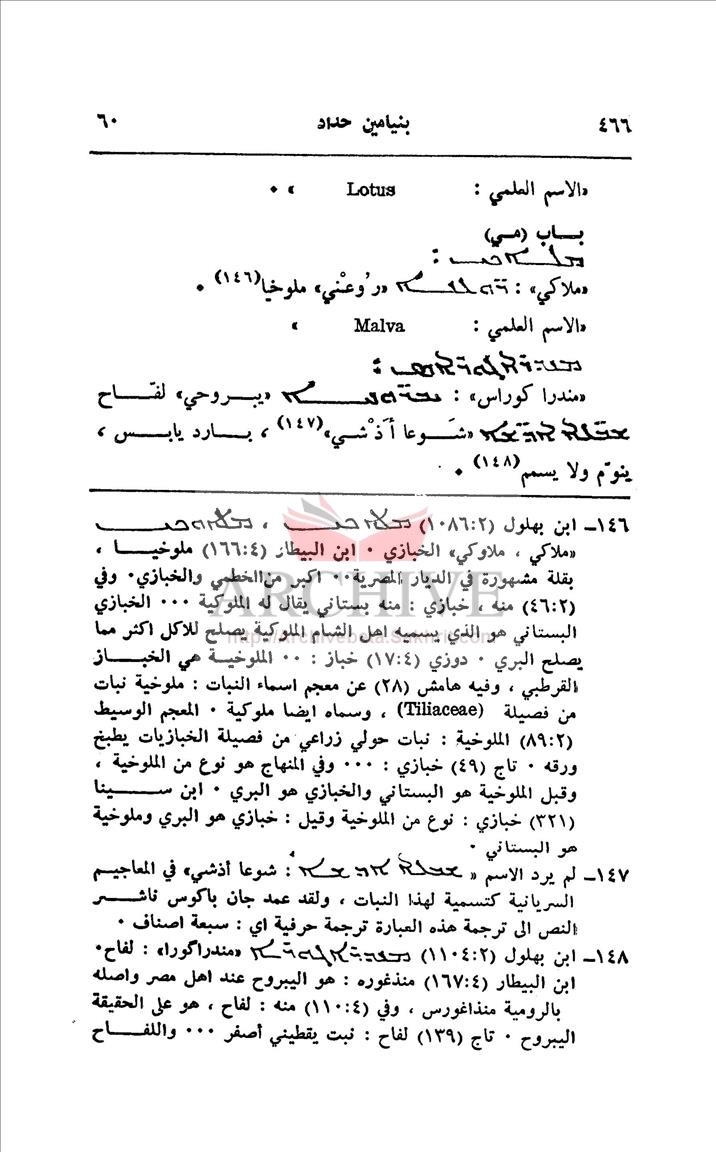 ٤٦٦ بنيامين حداد ٦٠
«الاسم العلمي : Lotus » ٠
بـــاب (مــي)
:
«ملاكي» : «رُوعْني» ملوخيا(١٤٦) ٠
«الاسم العلمي : Malva »
:
«مندرا كوراس» : «يبـــروحي» لفّـــاح
«شَـــوعا أَذْشي»(١٤٧) ، بـــارد يابــس ،
ينوّم ولا يسمم(١٤٨) ٠
١٤٦ــ ابن بهلول (١٠٨٦:٢) ،
«ملاكي ، ملاوكي» الخبازي ٠ ابن البيطار (١٦٦:٤) ملوخيـــا ،
بقلة مشهورة في الديار المصرية٠٠ اكبر من الخطمي والخبازي٠ وفي
(٤٦:٢) منه ، خبازي : منه بستاني يقال له الملوكية ٠٠٠ الخبازي
البستاني هو الذي يسميه اهل الشام الملوكية يصلح للاكل اكثر مما
يصلح البري ٠ دوزي (١٧:٤) خباز : ٠٠ الملوخيـة هي الخبـــاز
القرطبي ، وفيه هامش (٢٨) عن معجم اسماء النبات : ملوخية نبات
من فصيلة (Tiliaceae) ، وسماه ايضا ملوكية ٠ المعجم الوسيط
(٨٩:٢) الملوخية : نبات حولي زراعي من فصيلة الخبازيات يطبخ
ورقه ٠ تاج (٤٩) خبازي : ٠٠٠ وفي المنهاج هو نوع من الملوخية ،
وقبل الملوخية هو البستاني والخبازي هو البري ٠ ابن ســـينا
(٣٢١) خبازي : نوع من الملوخية وقيل : خبازي هو البري وملوخية
هو البستاني ٠
١٤٧ــ لم يرد الاسم « : شوعا أذشي» في المعاجيم
السريانية كتسمية لهذا النبات ، ولقد عمد جان باكوس ناشـــر
النص الى ترجمة هذه العبارة ترجمة حرفية اي : سبعة اصناف ٠
١٤٨ــ ابن بهلول (١١٠٤:٢) «مندراگورا» : لفاح٠
ابن البيطار (١٦٧:٤) منذغوره : هو اليبروح عند اهل مصر واصله
بالرومية منذاغورس ، وفي (١١٠:٤) منه : لفاح ، هو على الحقيقة
اليبروح ٠ تاج (١٣٩) لفاح : نبت يقطيني أصفر ٠٠٠ واللفـــاح
ARCHIVE